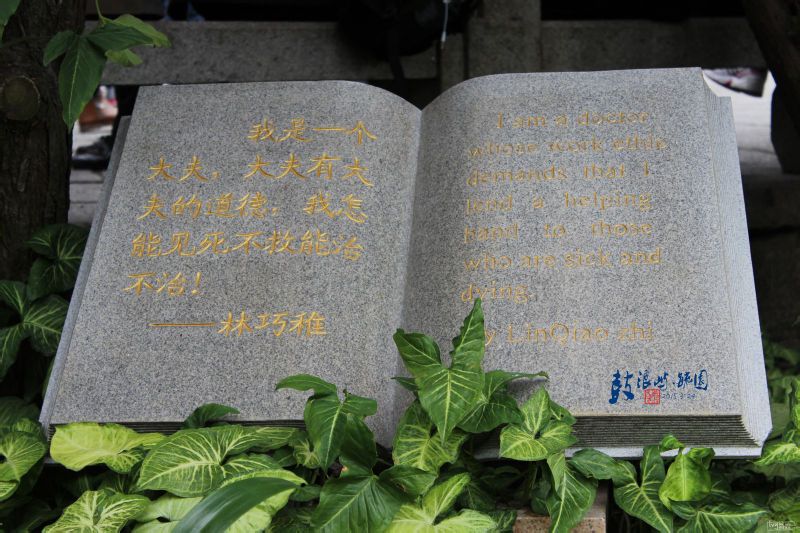 我是一个
大夫，大夫有大
夫的道德：我怎
能见死不救能治
不治！
——林巧稚
I am a doctor
whose work ethic
demands that I
lend a helping
hand to those
who are sick and
dying.
y LinQiao zhi
鼓浪屿